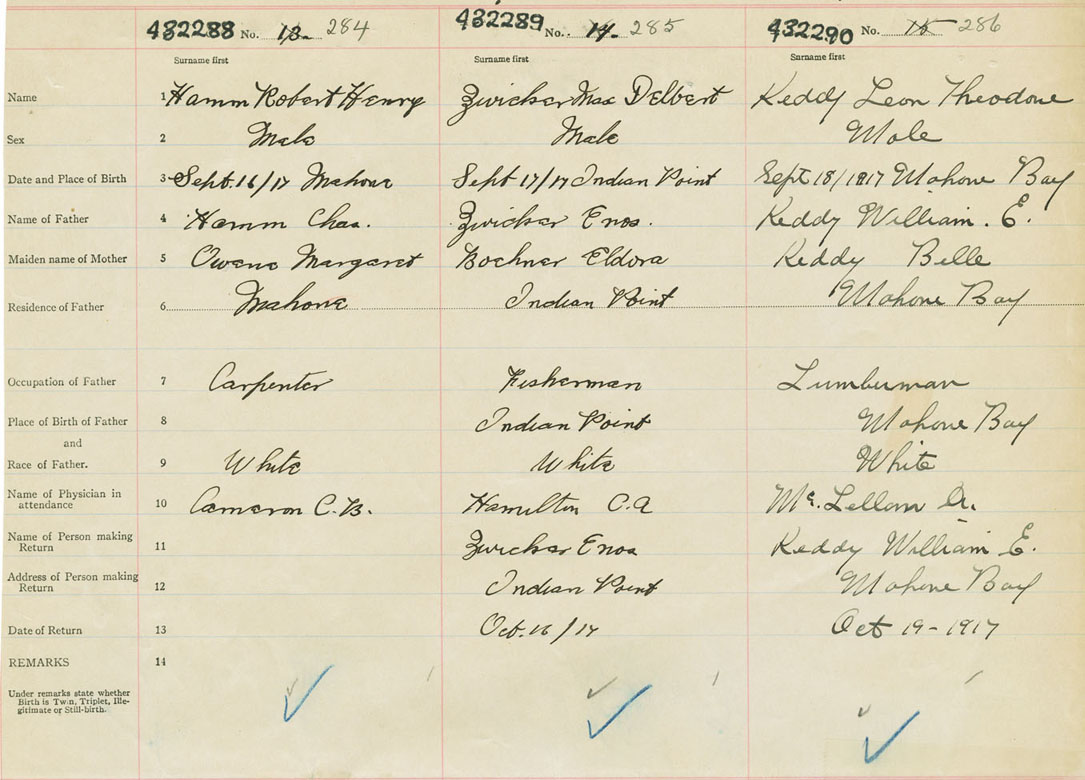 432288 No. 13. 284 432289 No. 14. 285 432290 No. 15 286
Surname first Surname first Surname first
Name 1 Hamm Robert Henry Zwicker Max Delbert Keddy Leon Theodore
Sex 2 Male Male Male
Date and Place of Birth 3 Sept. 16/17 Mahone Sept 17/17 Indian Point Sept 18/1917 Mahone Bay
Name of Father 4 Hamm Chas. Zwicker Enos. Keddy William. E.
Maiden name of Mother 5 Owens Margaret Boehner Eldora Keddy Belle
Residence of Father 6 Mahone Indian Point Mahone Bay
Occupation of Father 7 Carpenter Fisherman Lumberman
Place of Birth of Father 8 Indian Point Mahone Bay
and
Race of Father. 9 White White White
Name of Physician in
attendance 10 Cameron C. B. Hamilton C. A Mc. Lellan
Name of Person making
Return 11 Zwicker Enos Keddy William E.
Address of Person making
Return 12 Indian Point Mahone Bay
Date of Return 13 Oct. 16/17 Oct 19-1917
REMARKS 14
Under remarks state whether
Birth is Twin, Triplet, Ille-
gitimate or Still-birth.